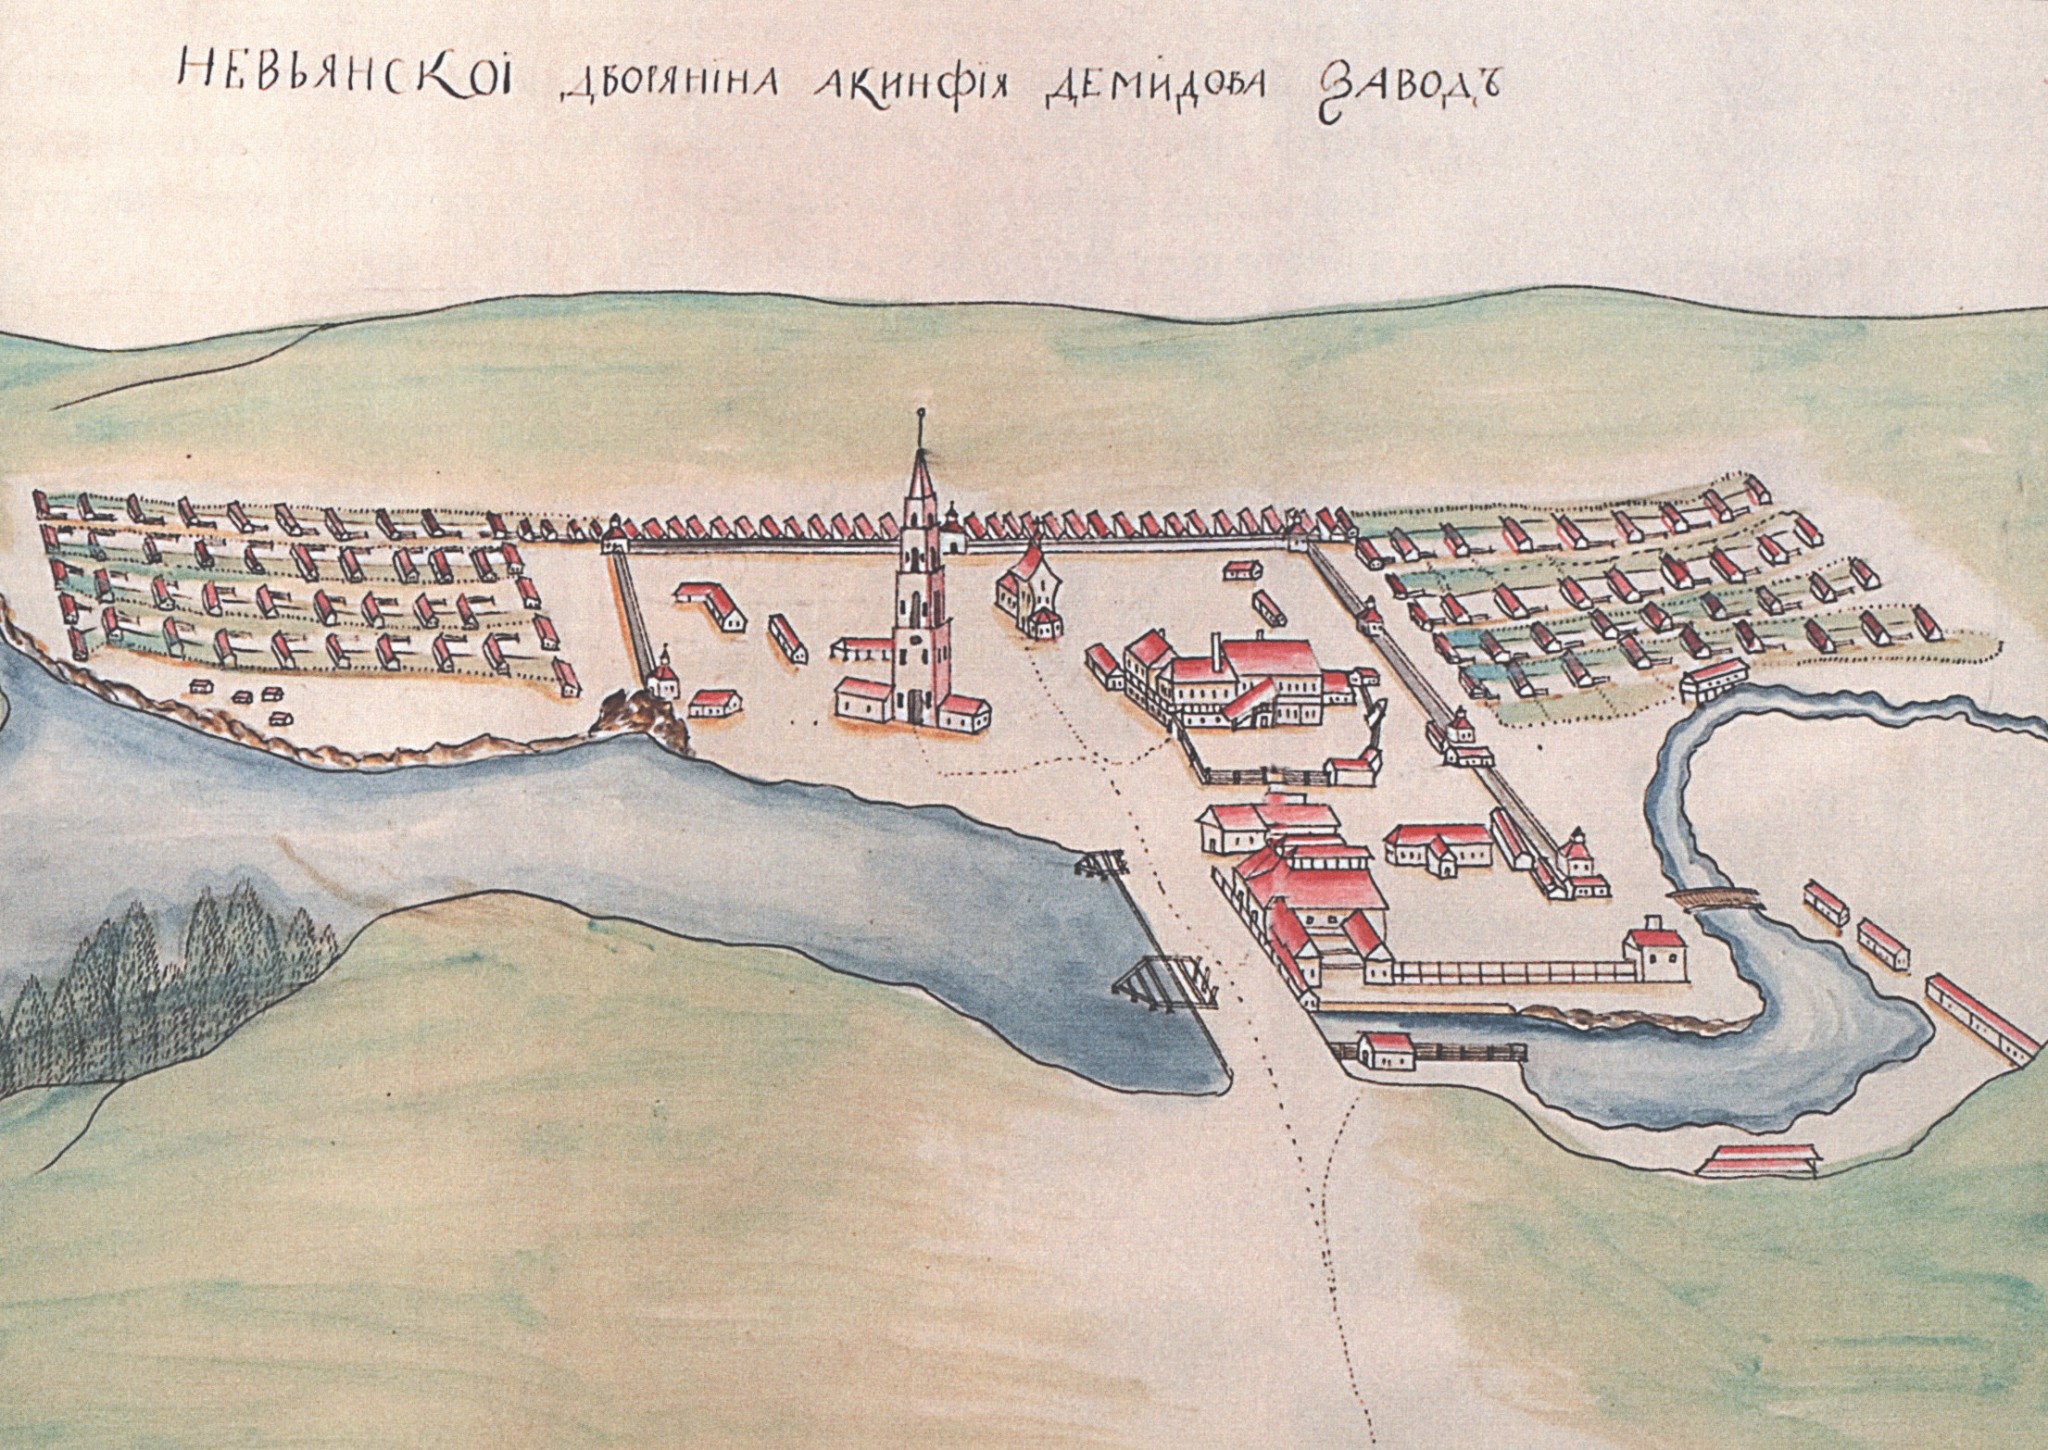 НЕВЬЯНСКОІ ДВОРЯНІНА АКИНФІЯ ДЕМИДОВА ЗАВОДЪ